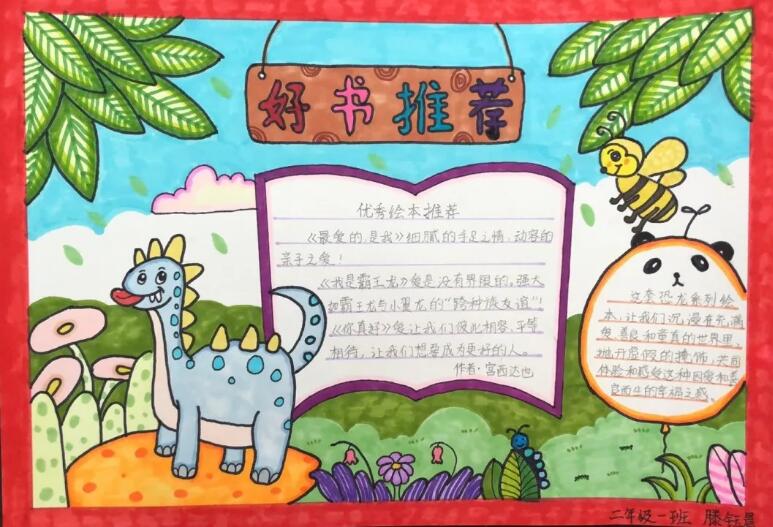 好书推荐
优秀绘本推荐
《最爱的是我》细腻的手足之情，动容的
亲子之爱！
《我是霸王龙》爱是没有界限的。强大
如霸王龙与小翼龙的“跨种族友谊”！
《你真好》爱让我们彼此相容、平等
相待，让我们想要成为更好的人。
作者：宫西达也
这套恐龙系列绘
本，让我们沉浸在充满
爱、善良和童真的世界里，
抛开虚假的掩饰，共同
体验和感受这种因爱和善
良而生的幸福之感。
二年级一班 滕